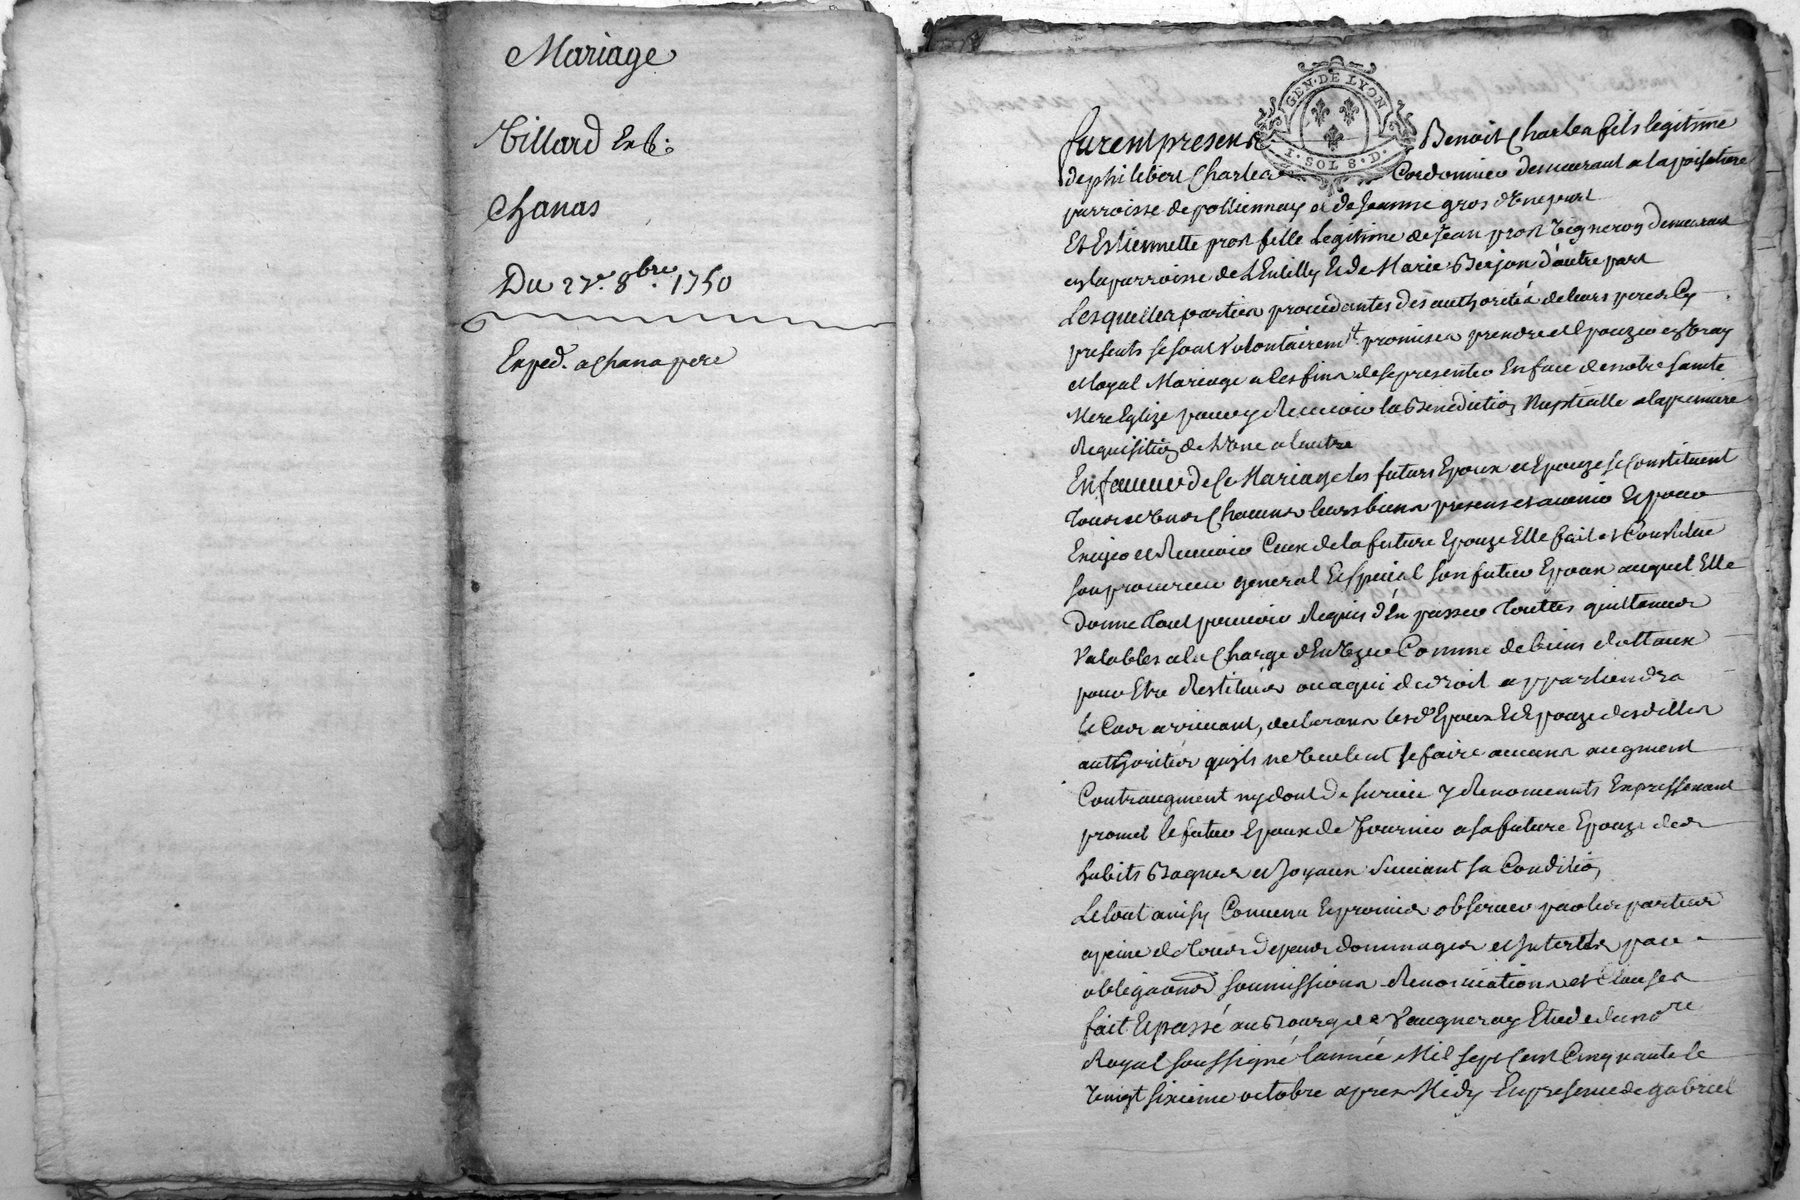 Mariage
Billard Et
Chanas
Du 27e. 8bre. 1750
Exped. a Chana pere
GEN. DE LYON
I. SOL 8. D.
furent presens Benoit Charles fils legitime
de philibert Charles Cordonnier demeurant a la
parroisse de pollionnay et de Jeanne gros d'Une part
Et Estiennette prost fille Legitime de Jean prost Vigneron demeurant
en la parroisse de L'Entilly Et de Marie Berjon d'autre part
Lesquelles parties procedantes des authorités de leurs peres Cy
presents se sont Volontairemt. promises prendre et Epouzer en Vray
et loyal Mariage a Ces fins de se presenter En face de notre Sainte
Mere Eglize pour y Recevoir la Benediction Nuptialle a la premiere
Requisition de L'Une a lautre
En faveur de Ce Mariage les futurs Epoux et Epouze se Constituent
tous et Uns Chacuns leurs biens presens et avenir Et pour
Exiger et Recevoir Ceux de la future Epouze Elle fait et Constitue
son procureur general Et special son futur Epoux auquel Elle
donne tout pouvoir Requis d'En passer touttes quittances
Valables a la Charge d'En Uzer Comme de biens dottaux
pour Etre Restitués ou a qui de droit appartiendra
le Cas arrivant, declarans lesds Epoux Et Epouze desdittes
authorités quils ne Veulent se faire aucuns augment
Contraugment ny dont de survie y Renonceants Expressement
promet le futur Epoux de fournir a sa future Epouze des
habits Bagues et Joyaux Suivant sa Condition
Le tout ainsy Convenu Et promis observer par les parties
a peine de tous depens dommages et Interets par
obligaons soumissions Renonciations et Clauses
fait Et passé au Bourg de Vaugneray Etude du nore
Royal soussigné lannée Mil sept Cent Cinquante le
Vingt sixieme octobre apres Midy En presence de gabriel